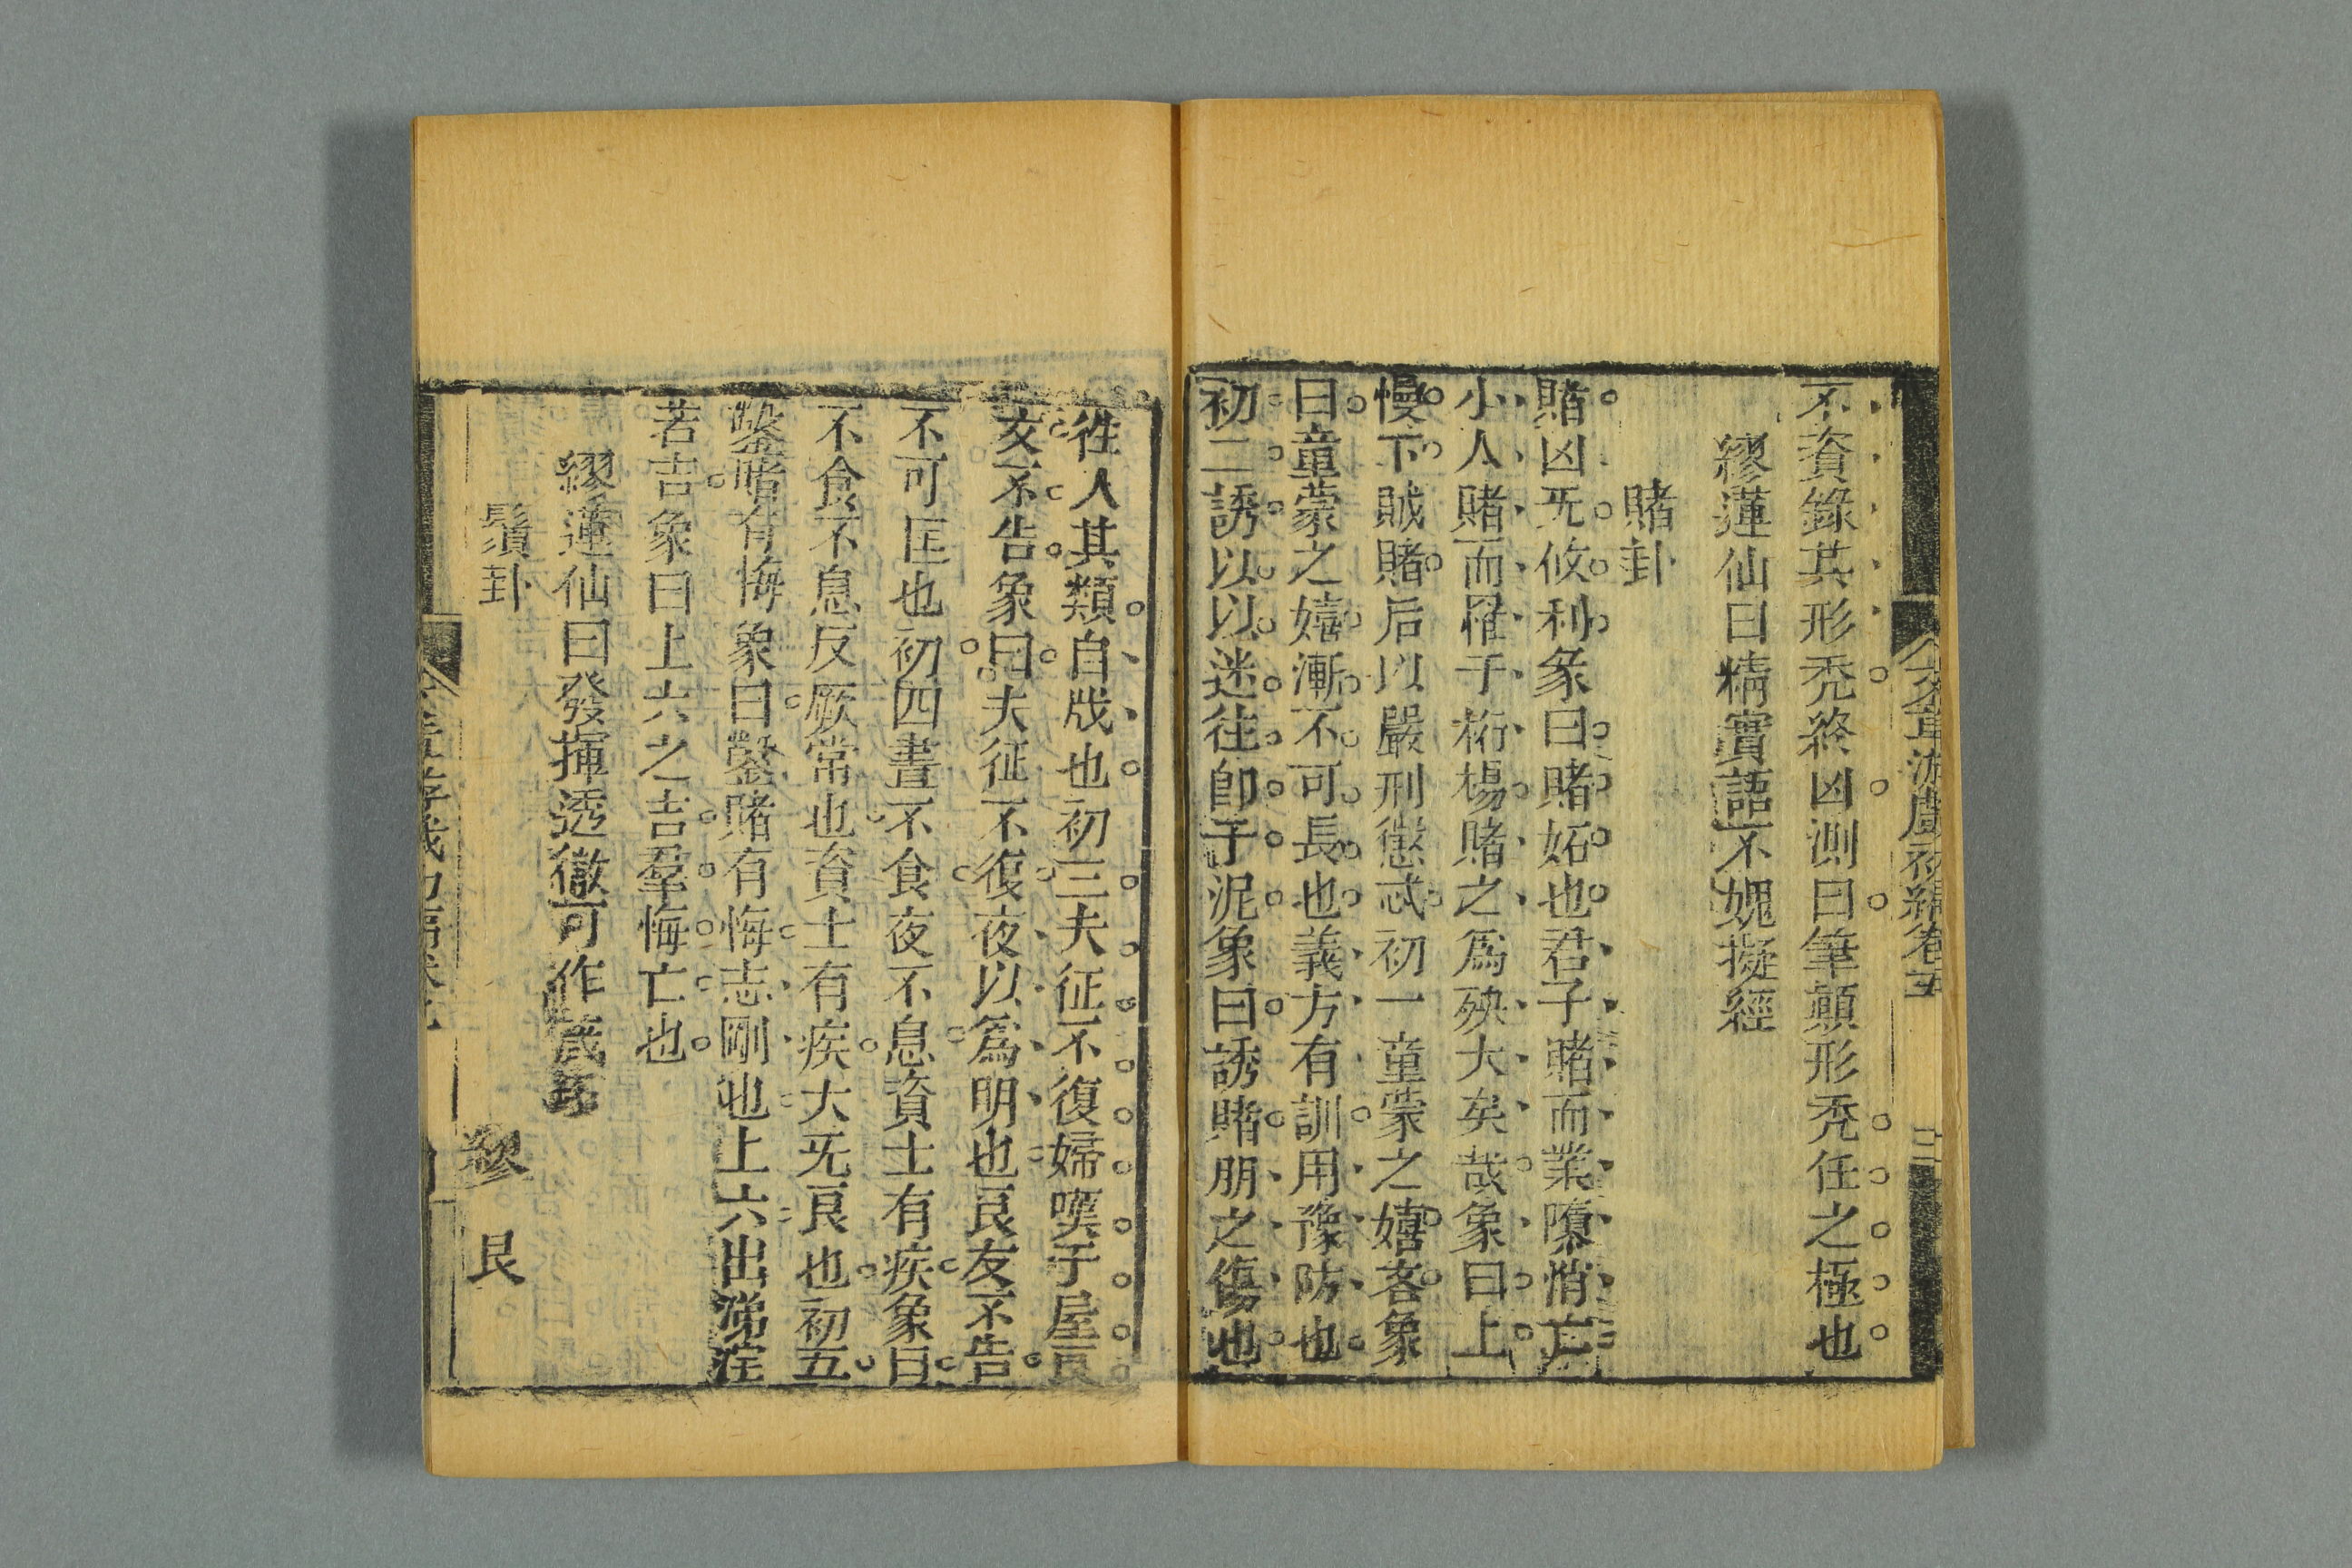 不賚錄其形禿終凶測曰筆顛形禿任之極也
繆蓮仙曰精實語不媿擬經
賭卦
賭凶旡攸利彖曰賭妬也君子賭而業隳悄亡
小人賭而罹于桁楊賭之爲殃大矣哉象曰上
慢下賊賭后以嚴刑懲忒初一童蒙之嬉吝象
曰童蒙之嬉漸不可長也義方有訓用豫防也
初二誘以以迷往卽于泥象曰誘賭朋之傷也
徃人其類自戕也初三夫征不復婦嘆于屋良
友不告象曰夫征不復夜以爲明也良友不告
不可匡也初四晝不食夜不息資士有疾象曰
不食不息反厥常也資士有疾大旡良也初五
鑿賭有悔象曰鑿賭有悔志剛也上六出涕沱
若吉象曰上六之吉羣悔亡也
繆蓮仙曰發揮透徹可作箴銘
鬚卦 繆艮
文章游戲初編卷五